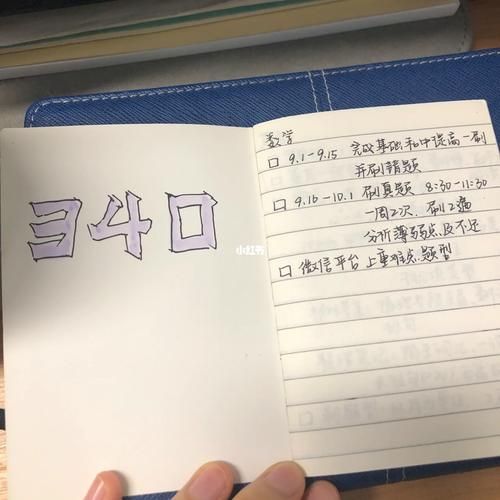 340
小红书
数学
□ 9.1-9.15 完成基础和中提高一刷
并刷错题
□ 9.16-10.1 刷真题 8:30-11:30
一周2次、刷2遍
分析薄弱点及不足
□ 微信平台上重难点题型